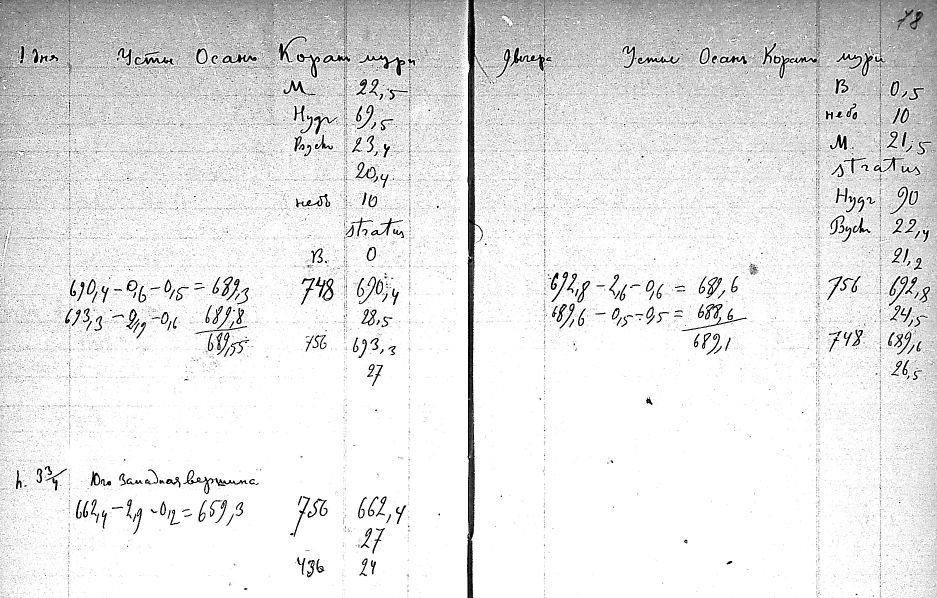 78
1 дня Усты Осанъ Коранъ мури
М 22,5
Нудг 69,5
Вуст 23,4
20,4
небо 10
stratus
В. 0
690,4 - 0,6 - 0,5 = 689,3 748 690,4
693,3 - 2,9 - 0,6 689,8 28,5
689,55 756 693,3
27
h. 3 3/4 Юго Западная вершина
662,4 - 2,9 - 0,2 = 659,3 756 662,4
27
436 24
9 вечера Устье Осанъ Коранъ мури
В 0,5
небо 10
М. 21,5
stratus
Нудг 90
Вуст 22,4
21,2
692,8 - 2,6 - 0,6 = 689,6 756 692,8
689,6 - 0,5 - 0,5 = 688,6 24,5
689,1 748 689,6
26,5